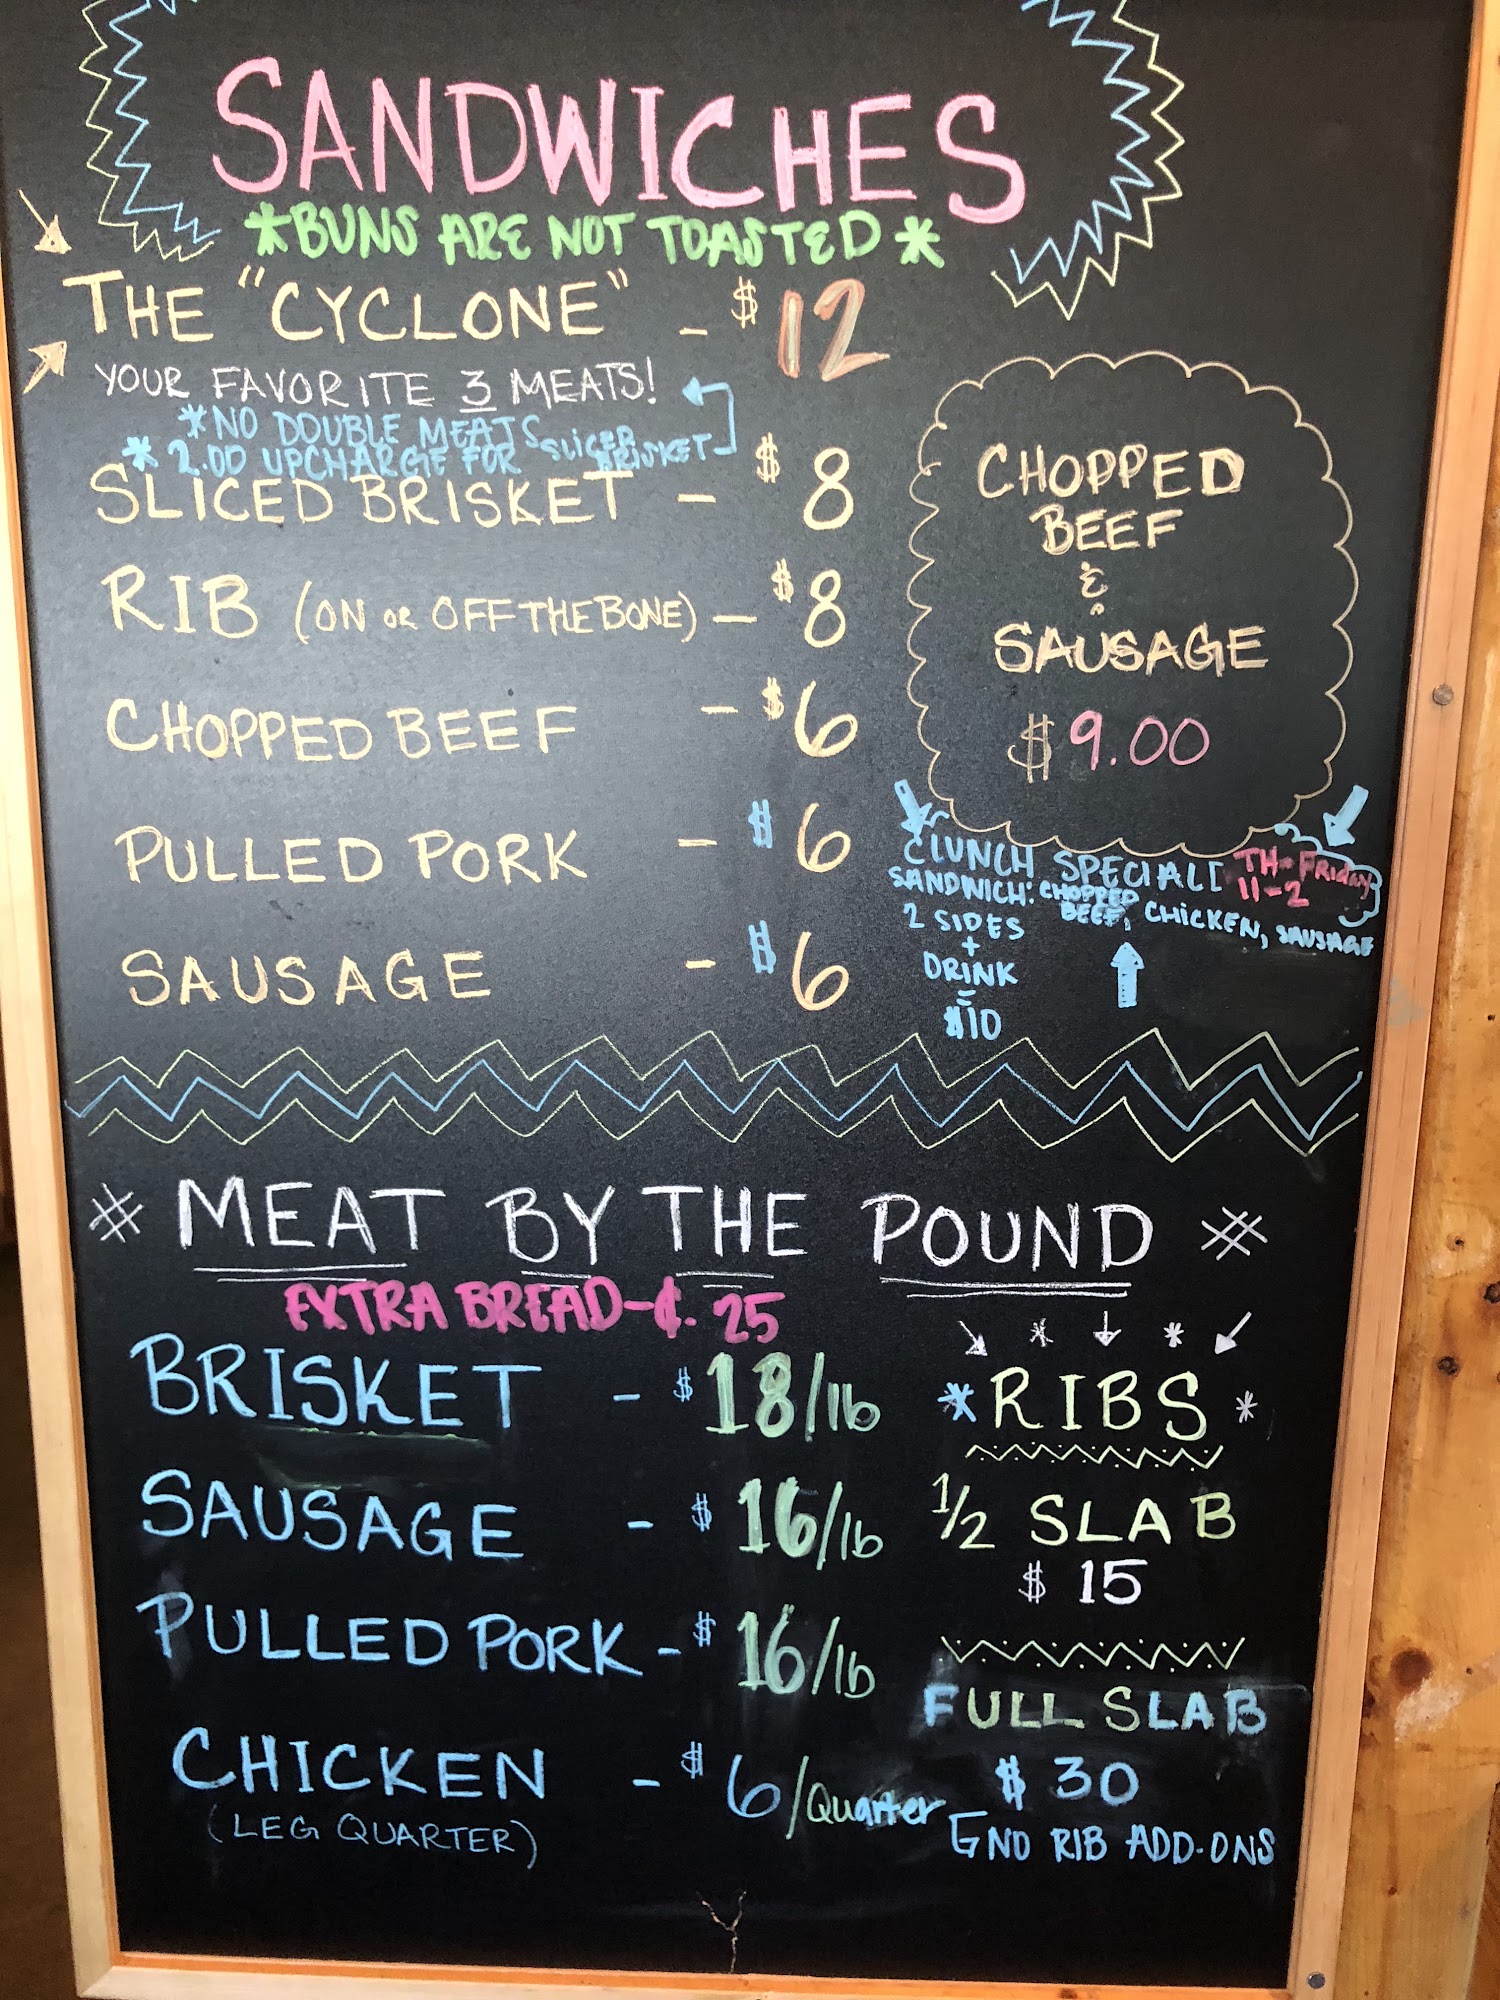 SANDWICHES
*BUNS ARE NOT TOASTED*
THE "CYCLONE" - $12
YOUR FAVORITE 3 MEATS!
*NO DOUBLE MEATS
* 2.00 UPCHARGE FOR SLICED BRISKET
SLICED BRISKET - $8
RIB (ON OR OFF THE BONE) - $8
CHOPPED BEEF - $6
PULLED PORK - $6
SAUSAGE - $6
CHOPPED
BEEF
&
SAUSAGE
$9.00
LUNCH SPECIAL TH-Friday
11-2
SANDWICH: CHOPPED BEEF, CHICKEN, SAUSAGE
2 SIDES
+
DRINK
=
$10
# MEAT BY THE POUND #
EXTRA BREAD-¢.25
BRISKET - $18/lb
SAUSAGE - $16/lb
PULLED PORK - $16/lb
CHICKEN - $6/Quarter
(LEG QUARTER)
*RIBS*
1/2 SLAB
$15
FULL SLAB
$30
NO RIB ADD-ONS